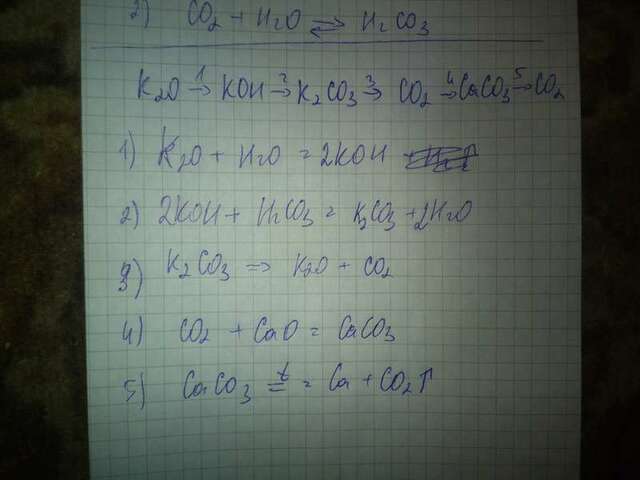 2) CO2 + H2O ⇌ H2CO3
K2O →1 KOH →2 K2CO3 →3 CO2 →4 CaCO3 →5 CO2
1) K2O + H2O = 2KOH
2) 2KOH + H2CO3 = K2CO3 + 2H2O
3) K2CO3 => K2O + CO2
4) CO2 + CaO = CaCO3
5) CaCO3 =t= Ca + CO2↑